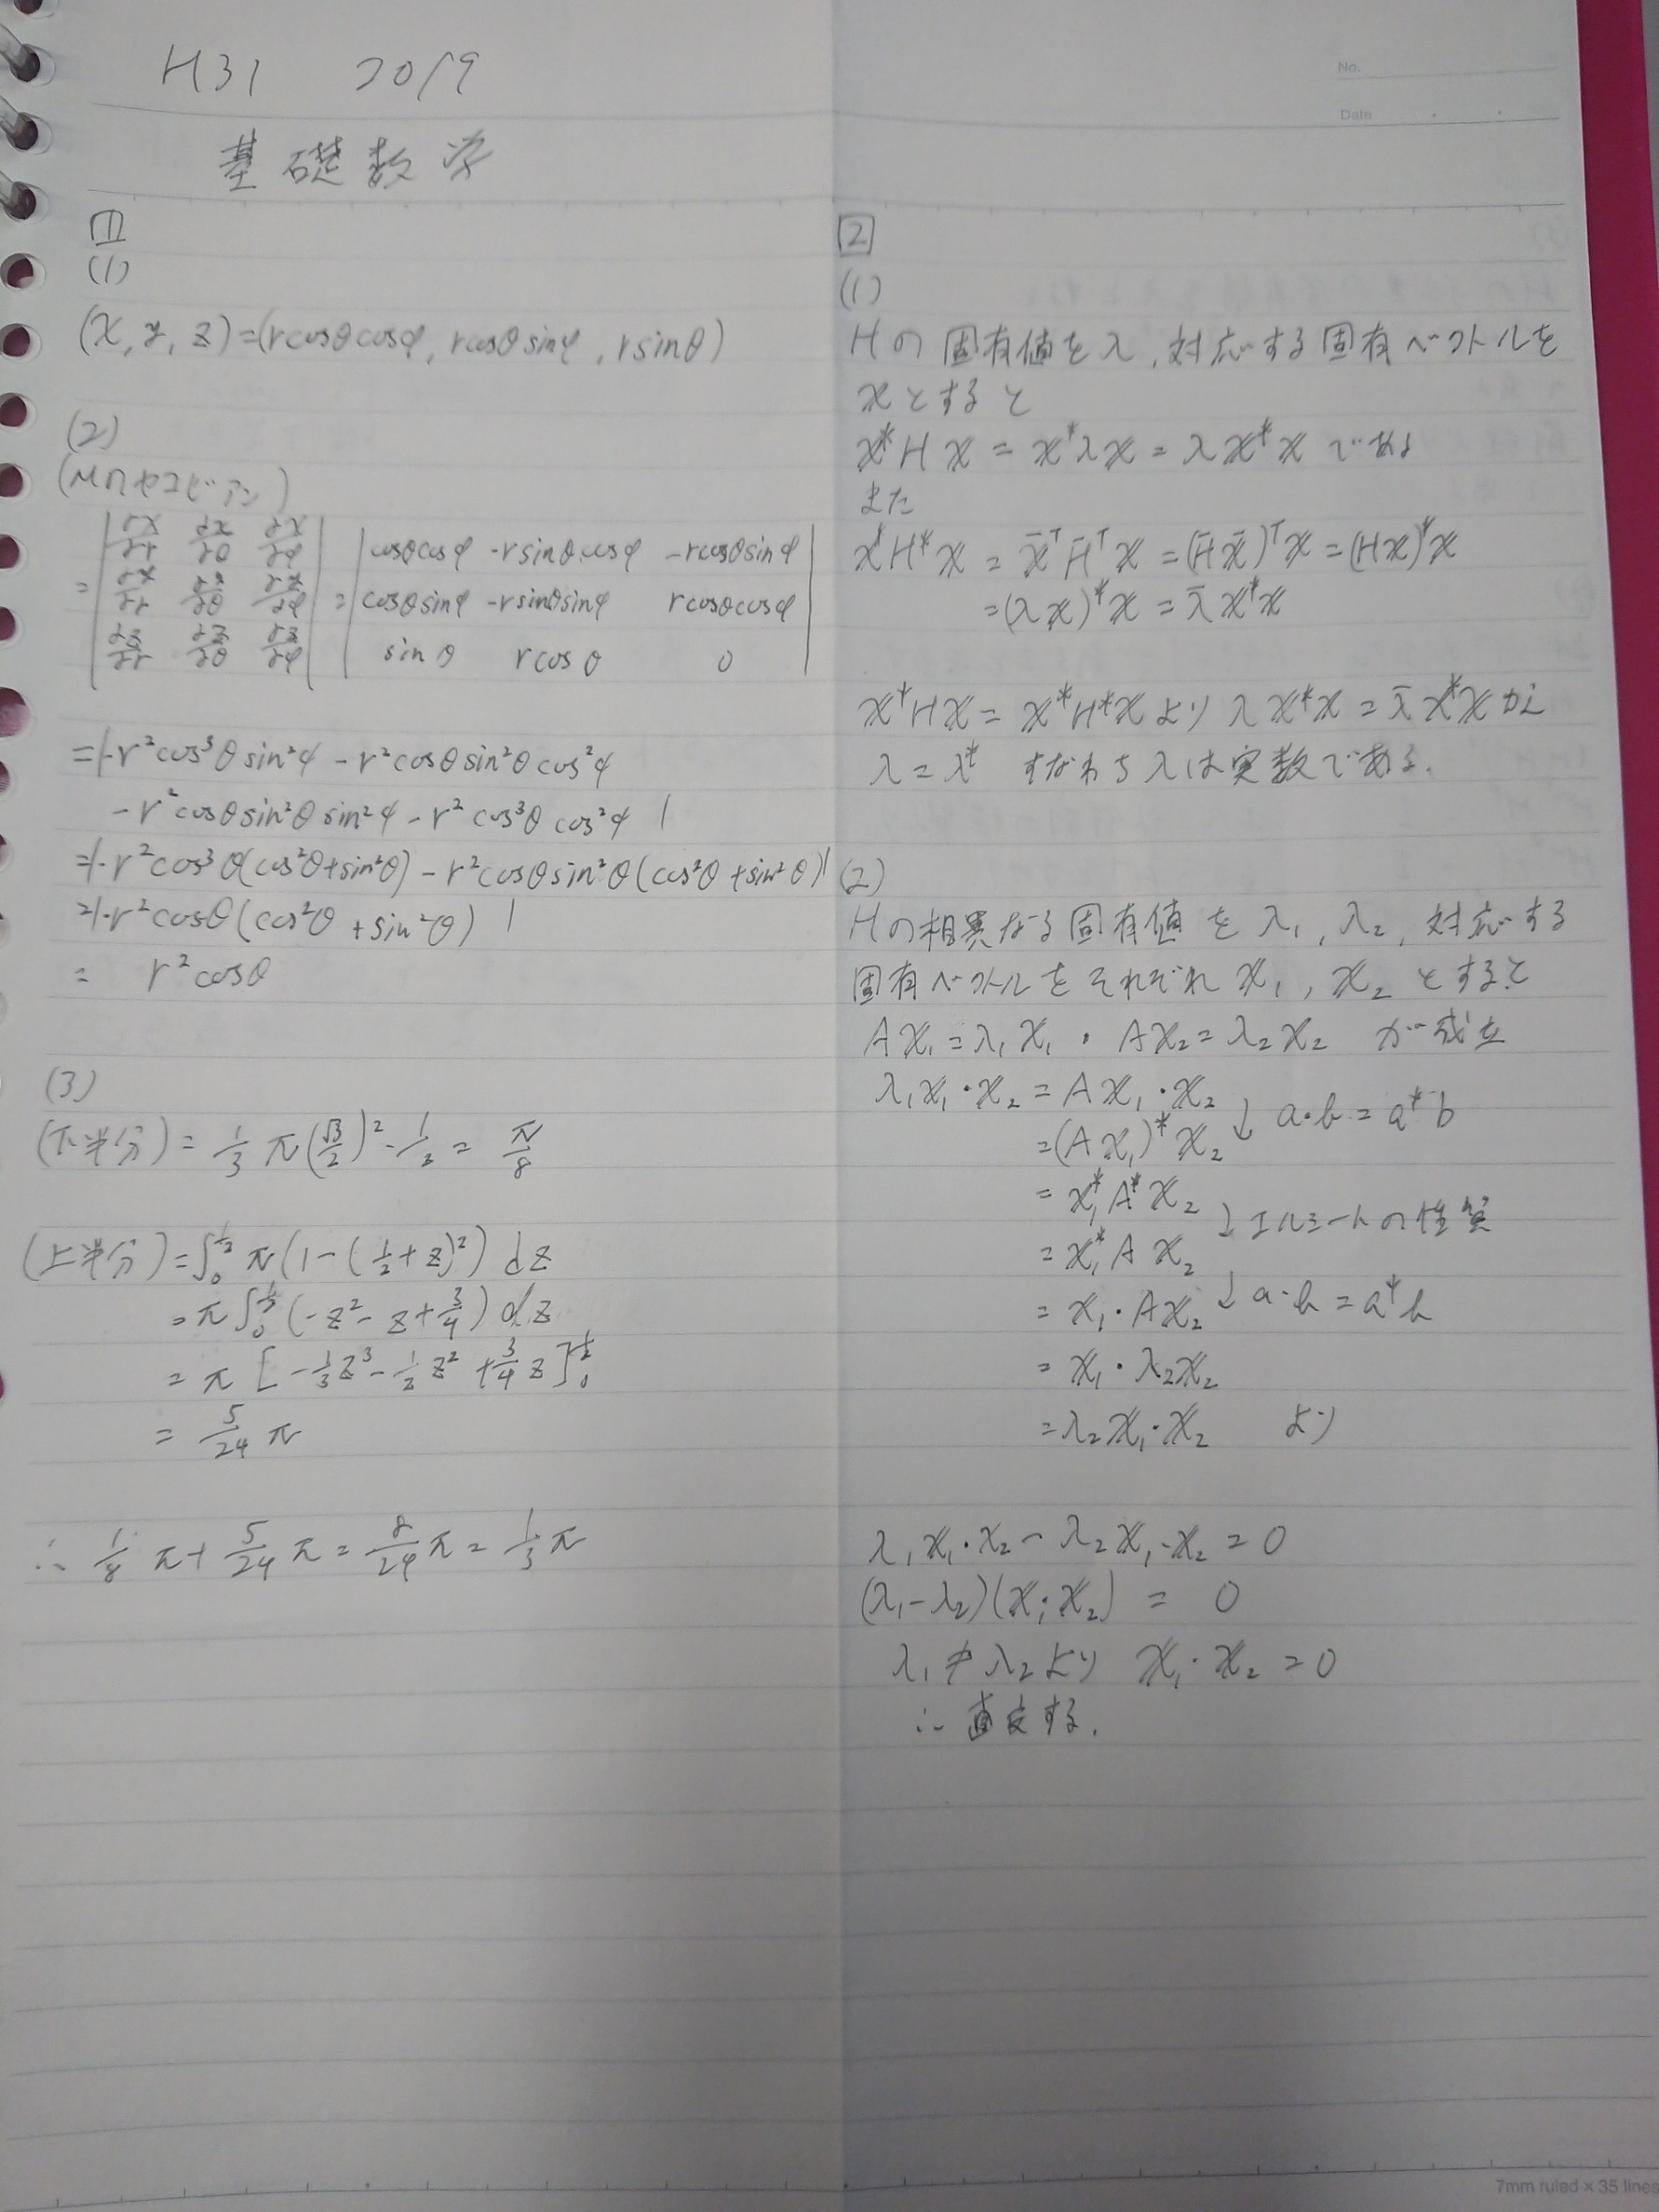 H31 2019
基礎数学
No.
Date
1
(1)
(x, y, z) = (r cosθ cosφ, r cosθ sinφ, r sinθ)
(2)
(Mのヤコビアン)
= | ∂x/∂r ∂x/∂θ ∂x/∂φ | = | cosθcosφ -r sinθ cosφ -r cosθ sinφ |
| ∂y/∂r ∂y/∂θ ∂y/∂φ | | cosθ sinφ -r sinθ sinφ r cosθ cosφ |
| ∂z/∂r ∂z/∂θ ∂z/∂φ | | sinθ r cosθ 0 |
= |-r² cos³θ sin²φ - r² cosθ sin²θ cos²φ
- r² cosθ sin²θ sin²φ - r² cos³θ cos²φ |
= |-r² cos³θ(cos²θ+sin²θ) - r² cosθ sin²θ(cos²θ+sin²θ)|
= |-r² cosθ(cos²θ + sin²θ) |
= r² cosθ
(3)
(下半分) = 1/3 π(√3/2)² · 1/2 = π/8
(上半分) = ∫₀^{1/2} π(1-(1/2+z)²) dz
= π∫₀^{1/2} (-z² - z + 3/4) dz
= π [-1/3 z³ - 1/2 z² + 3/4 z]₀^{1/2}
= 5/24 π
∴ 1/8 π + 5/24 π = 8/24 π = 1/3 π
2
(1)
Hの固有値をλ, 対応する固有ベクトルを
xとすると
x*Hx = x*λx = λx*x である
また
x*H*x = x̄ᵀH̄ᵀx = (H̄x̄)ᵀx = (Hx)*x
= (λx)*x = λ̄x*x
x*Hx = x*H*x より λx*x = λ̄x*x から
λ = λ* すなわちλは実数である.
(2)
Hの相異なる固有値をλ₁, λ₂, 対応する
固有ベクトルをそれぞれx₁, x₂とすると
Ax₁ = λ₁x₁ . Ax₂ = λ₂x₂ が成立
λ₁x₁·x₂ = Ax₁·x₂
= (Ax₁)*x₂ ↓ a·b = a*b
= x₁*A*x₂
= x₁*Ax₂ ↓ エルミートの性質
= x₁·Ax₂ ↓ a·b = a*b
= x₁·λ₂x₂
= λ₂x₁·x₂ より
λ₁x₁·x₂ - λ₂x₁·x₂ = 0
(λ₁-λ₂)(x₁·x₂) = 0
λ₁≠λ₂より x₁·x₂ = 0
∴ 直交する.
7mm ruled × 35 lines